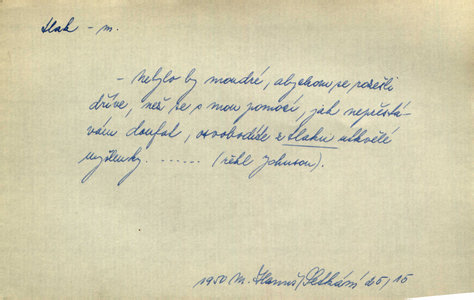 tlak - m.
- nebylo by moudré, abychom se rozešli
dříve, než se s mou pomocí, jak nepřestá-
vám doufat, osvobodíte z tlaku utkvělé
myšlenky. ...... (řekl Johnson).
1950 M. Hanuš, Setkání 25/15